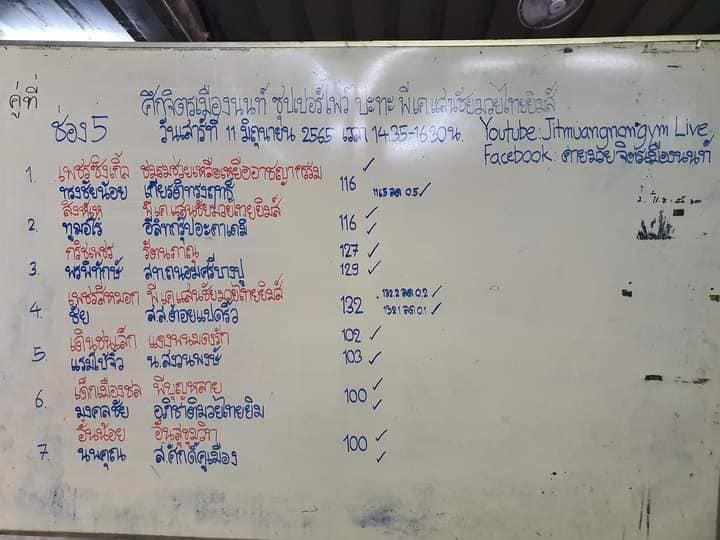 คู่ที่ ศึกจิตรเมืองนนท์ ซุปเปอร์ไฟว์ ปะทะ พี.เค.แสนชัยมวยไทยยิมส์
ช่อง 5 วันเสาร์ที่ 11 มิถุนายน 2565 เวลา 14.35-16.30 น. Youtube: Jitmuangnongym Live
Facebook: ค่ายมวยจิตรเมืองนนท์
1. เพชรซิงเกิ้ล ชมรมช่วยเหลือเหยื่ออาชญากรรม ✓
ทรงชัยน้อย เกียรติทรงฤทธิ์ 116 116.5 ลด 0.5 ✓
สิงห์เห พี.เค.แสนชัยมวยไทยยิมส์ ✓
2. ทูมอโร อีลิทกรุปอะคาเดมี 116 ✓
กริชเพชร รัตนภาณุ 127 ✓
3. พรพิทักษ์ ส.ท.ถนอมศรีบางปู 129 ✓
เพชรสีหมอก พี.เค.แสนชัยมวยไทยยิมส์ 132.2 ลด 0.2 ✓
4. ชัย ส.ส.ต้อยแปดริ้ว 132 132.1 ลด 0.1 ✓
เดินชนเล็ก แดงพนมดงรัก 102 ✓
5. แรมโบ้จิ๋ว น.สงวนพงษ์ 103 ✓
เด็กเมืองชล พีบุญหลาย ✓
6. มงคลชัย อภิชาติมวยไทยยิม 100 ✓
อั๋นน้อย อั๋นสุขุมวิท ✓
7. นนคุณ ส.ศักดิ์คูเมือง 100 ✓